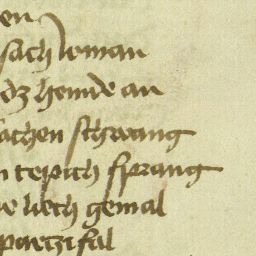 en
sach woman
dz hemde an
achen schwang
n tepich sprang
e liech gemal
partzifal